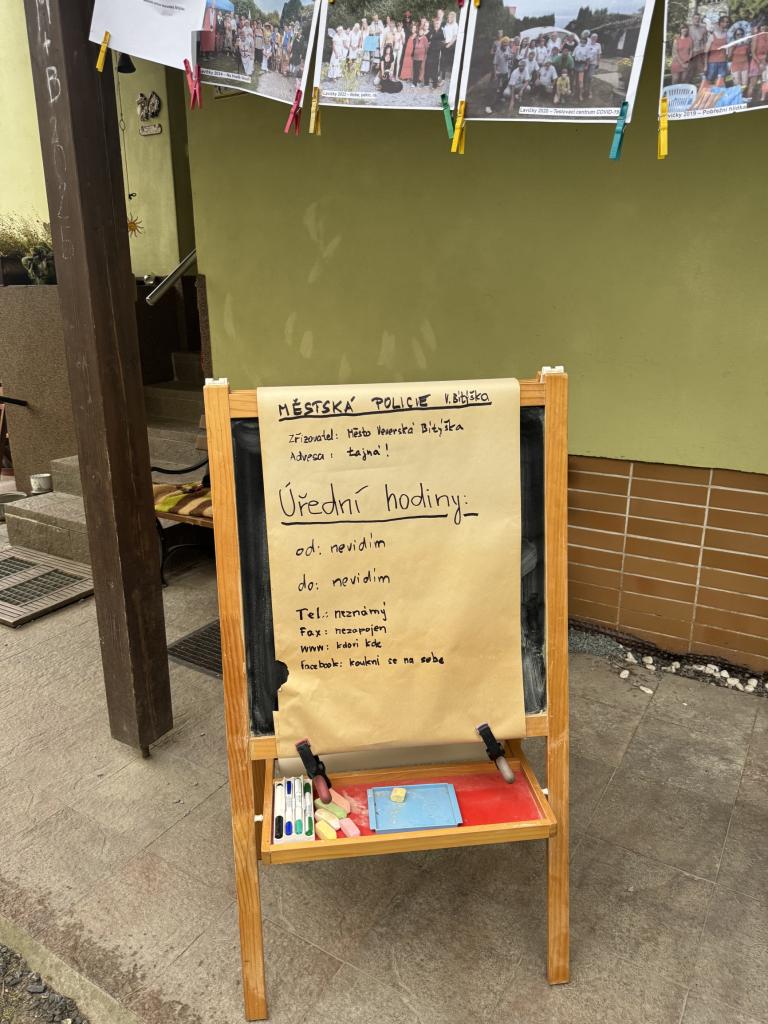 Lavičky 2022 – Nebe, peklo, ráj
Lavičky 2020 – Testovací centrum COVID-19
Lavičky 2019 – Pobřežní hlídka
M+B 2025
MĚSTSKÁ POLICIE V. Bitýška
Zřizovatel: Město Veverská Bitýška
Adresa: tajná!
Úřední hodiny:
od: nevidím
do: nevidím
Tel.: neznámý
Fax: nezapojen
www: kdoví kde
Facebook: koukni se na sebe